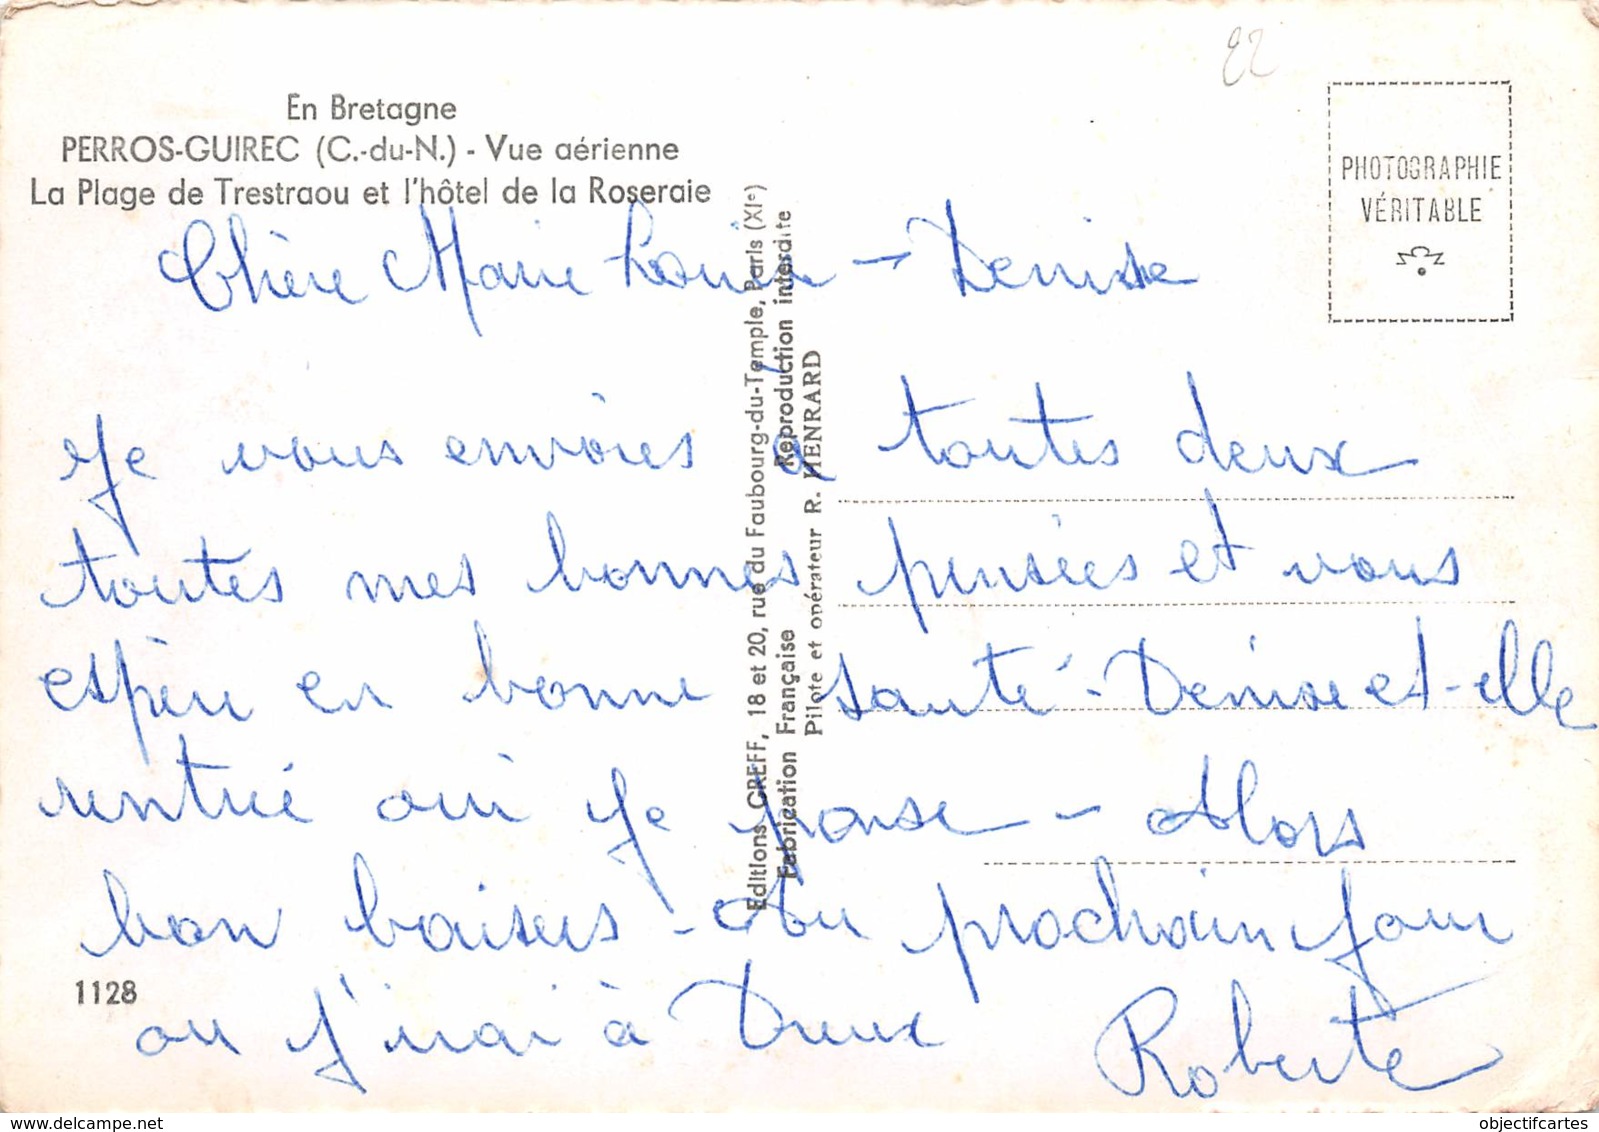 22
En Bretagne
PERROS-GUIREC (C.-du-N.) - Vue aérienne
La Plage de Trestraou et l'hôtel de la Roseraie
PHOTOGRAPHIE
VÉRITABLE
Editions GREFF, 18 et 20, rue du Faubourg-du-Temple, Paris (XIe)
Fabrication Française Reproduction interdite
Pilote et opérateur R. HENRARD
Chère Marie Louise - Denise
Je vous envoies à toutes deux
toutes mes bonnes pensées et vous
espère en bonne santé - Denise et-elle
rentrée oui je pense - Alors
bon baisers - Au prochain jour
ou j'irai à Dreux Roberte
1128
www.delcampe.net
objectifcartes